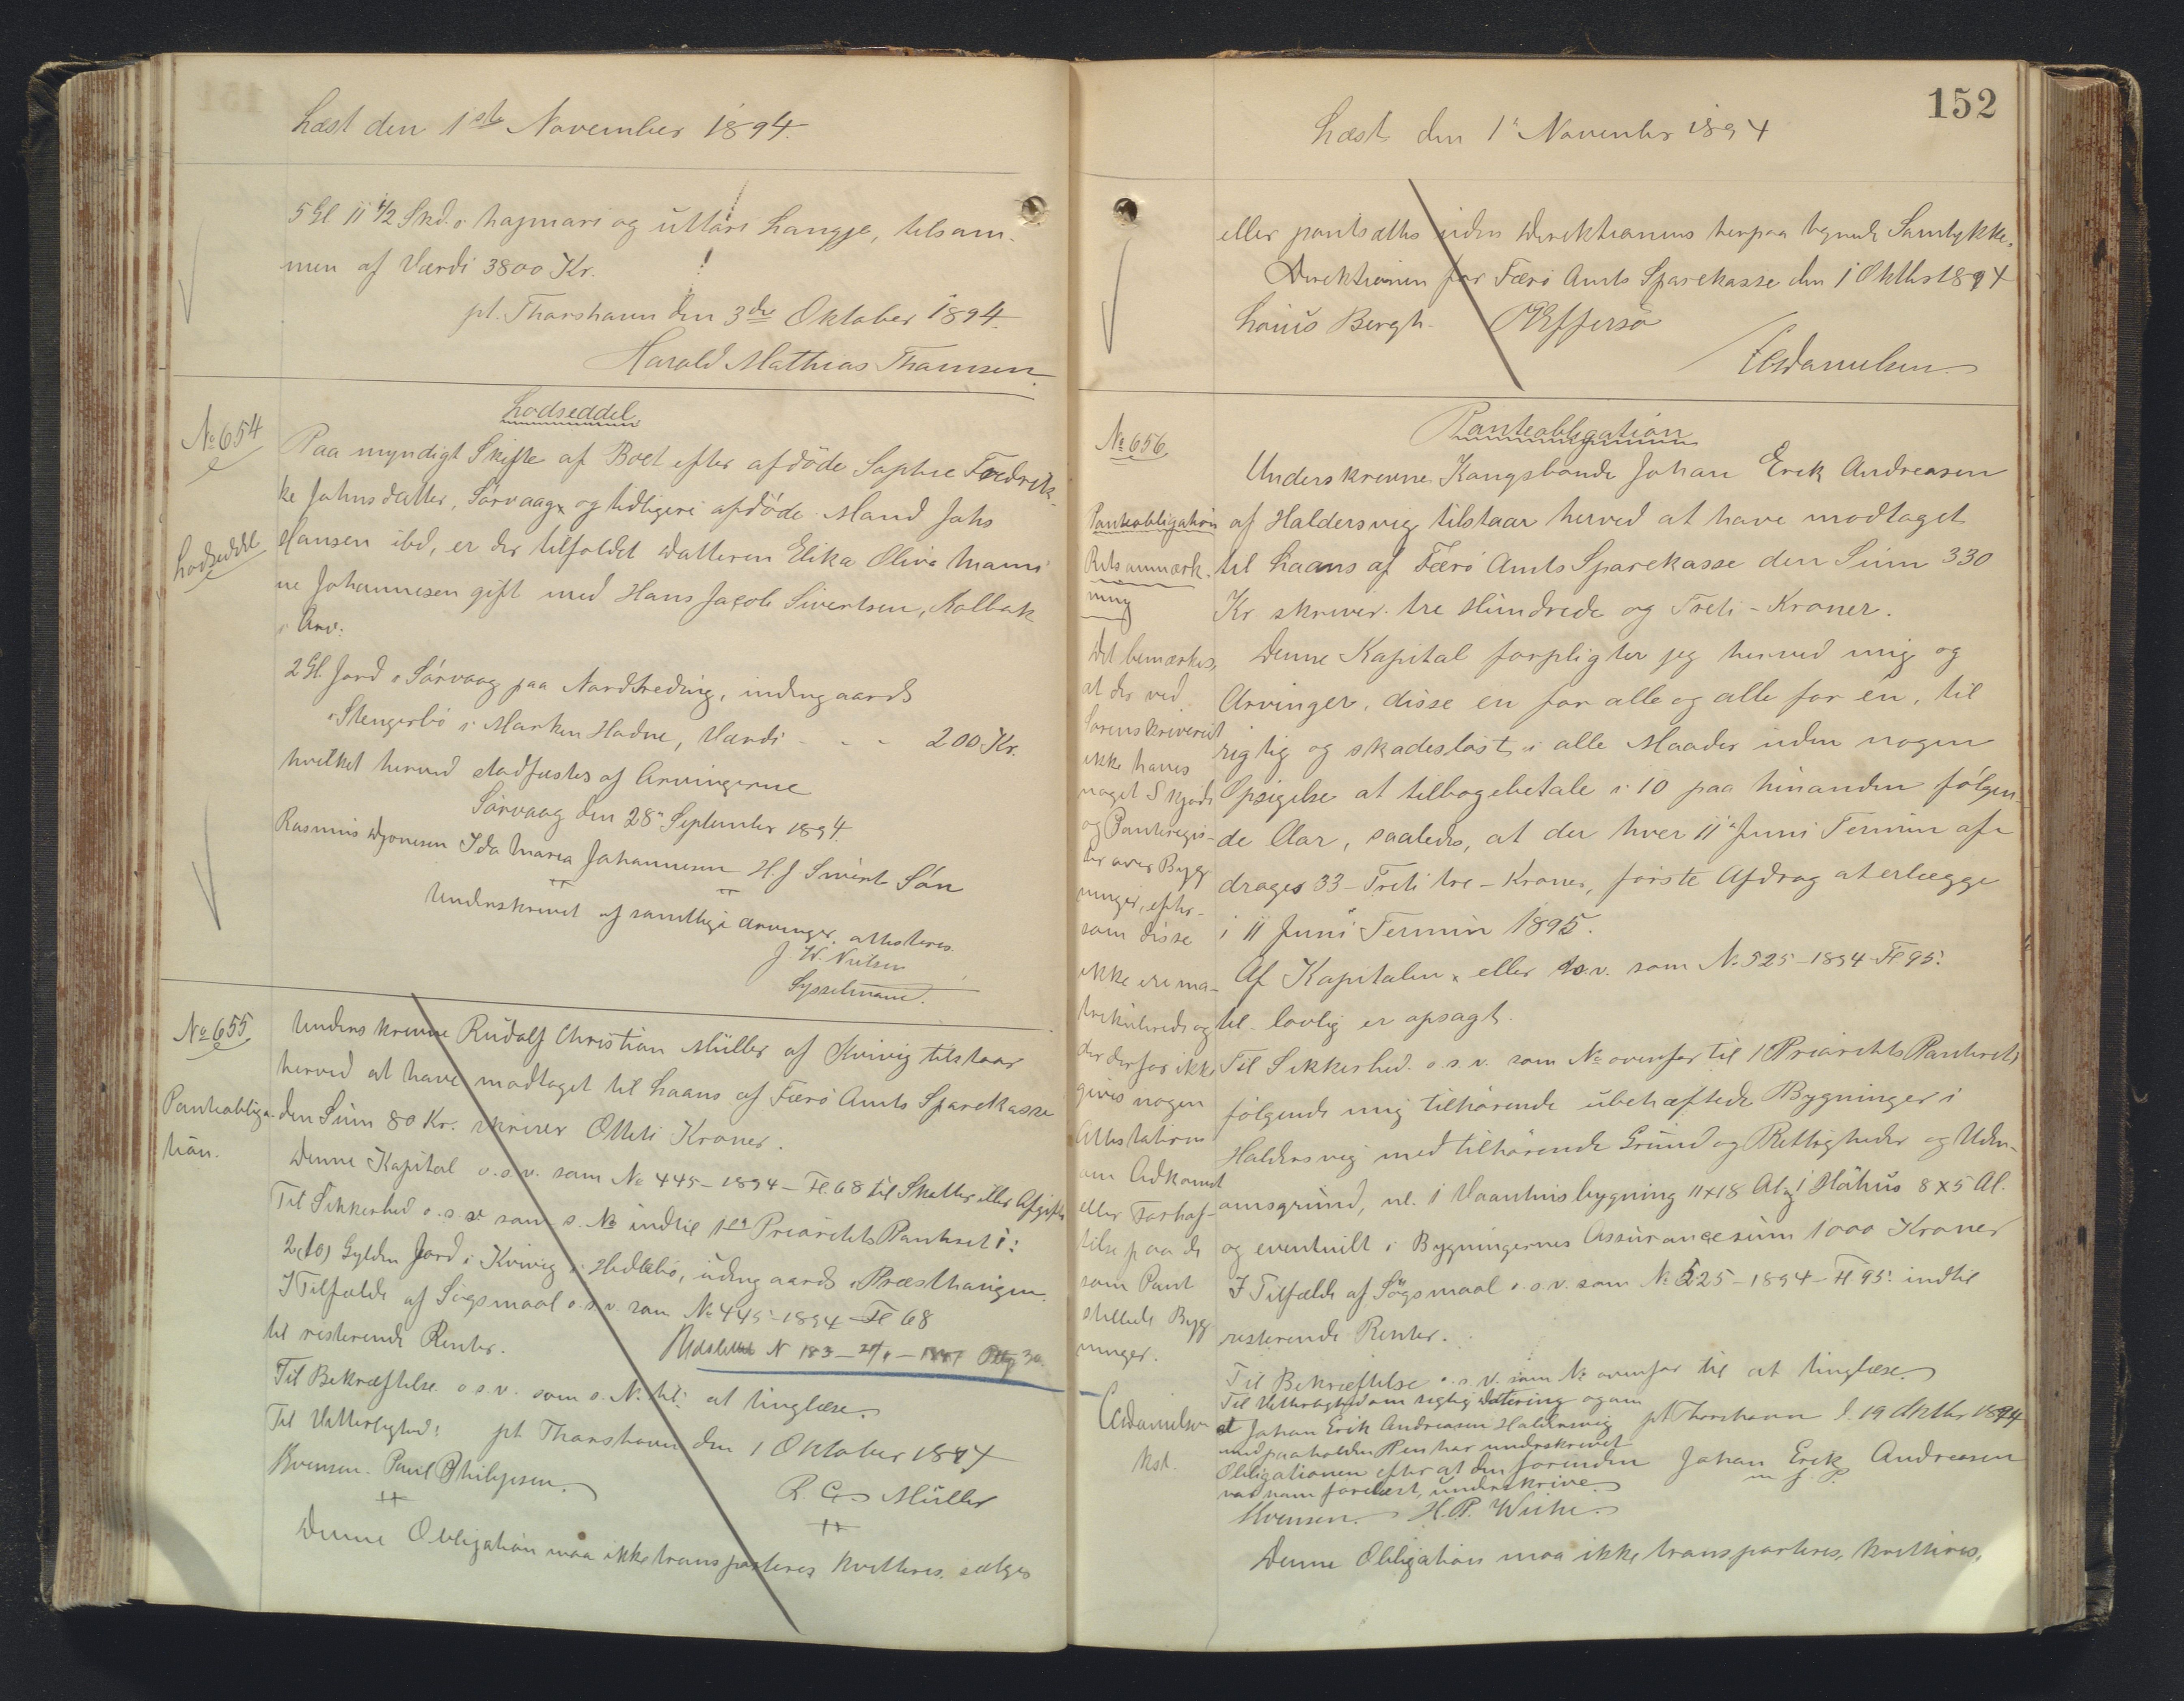 Læst den 1ste November 1894.
5 Gl 11 1/2 Skd. i hajmari og uttari Hangje, tilsam-
men af Værdi 3800 Kr.
pt. Thorshavn den 3die Oktober 1894.
Harald Mathias Thomsen
Lodseddel
No 654
Lodseddel
Paa myndigt Skifte af Boet efter afdöde Sophie Fredrik-
ke Johnsdatter, Sörvaag og tidligere afdöde Mand Johs
Hansen ibd, er der tilfaldet Datteren Elika Olivia
ne Johannesen gift med Hans Jacob Sivertsen, Kalbak
i Arv:
2 Gl. Jord i Sörvaag paa Nordtreding, indengaards
i Stengerbö i Marken Hadne, Værdi - - - 200 Kr.
hvilket herved stadfæstes af Arvingerne
Sörvaag den 28de September 1894.
Rasmus Djonesen Ida Maria Johannesen H. J. Sivert Sön
Underskrevet af samtlige Arvinger, attesteres
J. W. Nielsen
Sysselmand.
No 655
Pantobliga-
tion.
Underskrevne Rudolf Christian Müller af Kvivig tilstaar
herved at have modtaget til Laans af Færö Amts Sparekasse
den Sum 80 Kr. skriver Otteti Kroner.
Denne Kapital o.s.v. som No 445-1894-Fl. 68 til Skatter eller Afgifter
Til Sikkerhed o.s.v. som s. No indtil 1ste Prioritets Panteret i:
2 (to) Gylden Jord i Kvivig i Hedlebö, udengaards i Præsthaugen.
I Tilfælde af Sögsmaal o.s.v. som No 445-1894-Fl 68
til resterende Renter.
Udslettet N 183
Til Bekræftelse o.s.v. som s. No. til: at tinglæse.
Til Vitterlighed: pt Thorshavn den 1 Oktober 1894
Svensen. Paul Philipsen. R. C. Müller
Denne Obligation maa ikke transporteres, kvitteres, sælges
152
Læst den 1te November 1894
eller pantsættes uden Direktionens herpaa tegnede Samtykke.
Direktionen for Færö Amts Sparekasse den 1 Oktbr 1894
Louis Bergh. Effersö
C. Danielsen.
Pantobligation
No 656
Pantobligation
Retsanmærk-
ning
Det bemærkes,
at der ved
Sorenskriveriet
ikke haves
noget Skjöde
og Panteregis-
ter over Byg-
ninger, efter-
som disse
ikke ere ma-
trikulerede og
der derfor ikke
gives nogen
Attestation
om Adkomst
eller Forhæf-
telse paa de
som Pant
stillede Byg-
ninger.
C. Danielsen
kst.
Underskrevne Kongsbonde Johan Erik Andreasen
af Haldersvig tilstaar herved at have modtaget
til Laans af Færö Amts Sparekasse den Sum 330
Kr. skriver tre Hundrede og Treti - Kroner.
Denne Kapital forpligter jeg herved mig og
Arvinger, disse en for alle og alle for en, til
rigtig og skadeslöst i alle Maader uden nogen
Opsigelse at tilbagebetale i 10 paa hinanden fölgen-
de Aar, saaledes, at der hver 11te Juni Termin af-
drages 33 - Treti tre - Kroner, förste Afdrag at erlægge
i 11 Juni Termin 1895.
Af Kapitalen eller o.s.v. som No 525-1894-Fl 95:
til lovlig er opsagt.
Til Sikkerhed o.s.v. som No ovenfor til 1 Prioritets Panteret i
fölgende mig tilhörende ubehæftede Bygninger i
Haldersvig med tilhörende Grund og Rettigheder og Uden-
omsgrund, nl. 1 Vaaningsbygning 11x18 Al og 1 Höhus 8x5 Al.
og eventuelt i Bygningernes Assurancesum 1000 Kroner
I Tilfælde af Sögsmaal o.s.v. som No 525-1894-Fl 95: indtil
resterende Renter.
Til Bekræftelse o.s.v. som No ovenfor til at tinglæse.
Til Vitterlighed om rigtig Datering og om
at Johan Erik Andreasen Haldersvig pt Thorshavn d. 19 Oktbr 1894
med paaholden Pen har underskrevet
Obligationen efter at den forinden Johan Erik Andreasen
var ham forelæst, underskrive m. f. P.
Svensen. H. P. Weihe.
Denne Obligation maa ikke transporteres, kvitteres,